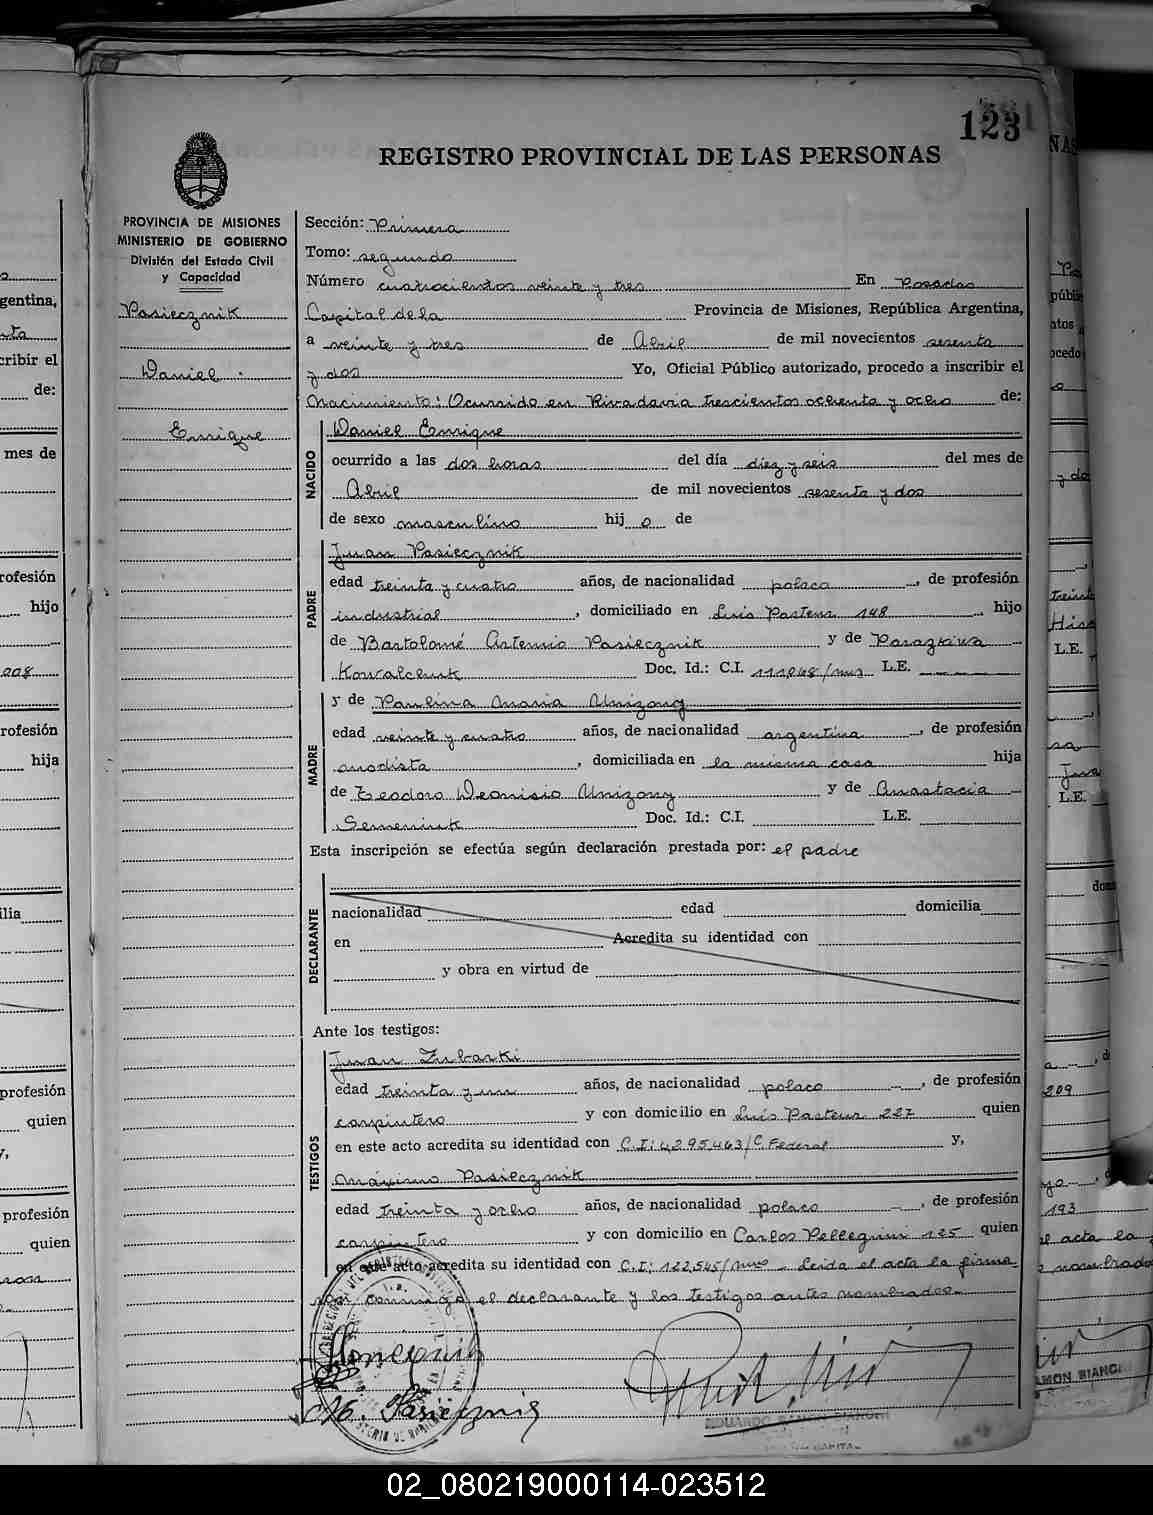 123
REGISTRO PROVINCIAL DE LAS PERSONAS
PROVINCIA DE MISIONES
MINISTERIO DE GOBIERNO
División del Estado Civil
y Capacidad
Pasiecznik
Daniel
Enrique
Sección: Primera
Tomo: segundo
Número cuatrocientos veinte y tres En Posadas
Capital de la Provincia de Misiones, República Argentina,
a veinte y tres de Abril de mil novecientos sesenta
y dos Yo, Oficial Público autorizado, procedo a inscribir el
Nacimiento: Ocurrido en Rivadavia trescientos ochenta y ocho de:
NACIDO
Daniel Enrique
ocurrido a las dos horas del día diez y seis del mes de
Abril de mil novecientos sesenta y dos
de sexo masculino hij o de
PADRE
Juan Pasiecznik
edad treinta y cuatro años, de nacionalidad polaca, de profesión
industrial, domiciliado en Luis Pasteur 148 hijo
de Bartolomé Artemio Pasiecznik y de Parazkiva
Kowalchuk Doc. Id.: C.I. L.E.
MADRE
y de Paulina Maria
edad veinte y cuatro años, de nacionalidad argentina, de profesión
modista, domiciliada en la misma casa hija
de Teodoro Deonisio y de Anastacia
Semeniuk Doc. Id.: C.I. L.E.
Esta inscripción se efectúa según declaración prestada por: el padre
DECLARANTE
nacionalidad edad domicilia
en Acredita su identidad con
y obra en virtud de
Ante los testigos:
TESTIGOS
Juan Zubarki
edad treinta y un años, de nacionalidad polaco, de profesión
carpintero y con domicilio en Luis Pasteur 227 quien
en este acto acredita su identidad con C.I: 4295463/C. Federal y,
Máximo Pasiecznik
edad treinta y ocho años, de nacionalidad polaco, de profesión
carpintero y con domicilio en Carlos Pellegrini 125 quien
en este acto acredita su identidad con C.I: 122,545/mnes - Leida el acta la firma
conmigo el declarante y los testigos antes nombrados.-
M. Pasiecznik
EDUARDO RAMON BIANCHI
02_080219000114-023512